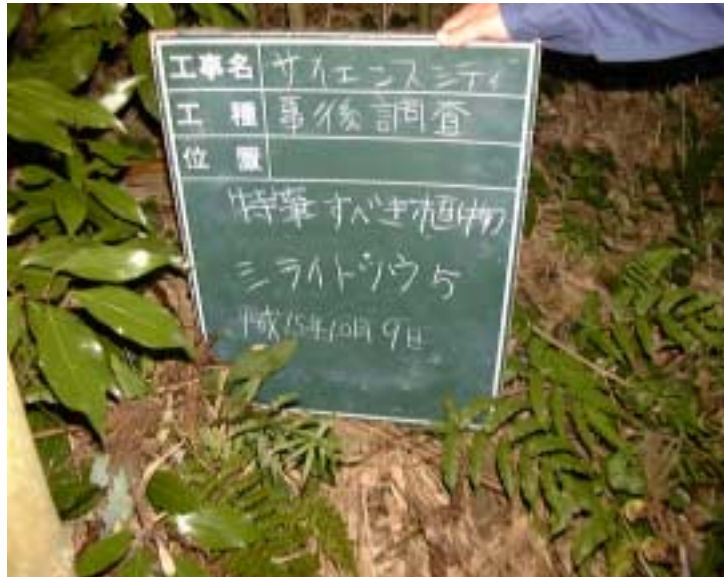 工事名 サイエンスシティ
工種 事後調査
位置
特筆すべき植物
シライトソウ 5
平成15年10月9日